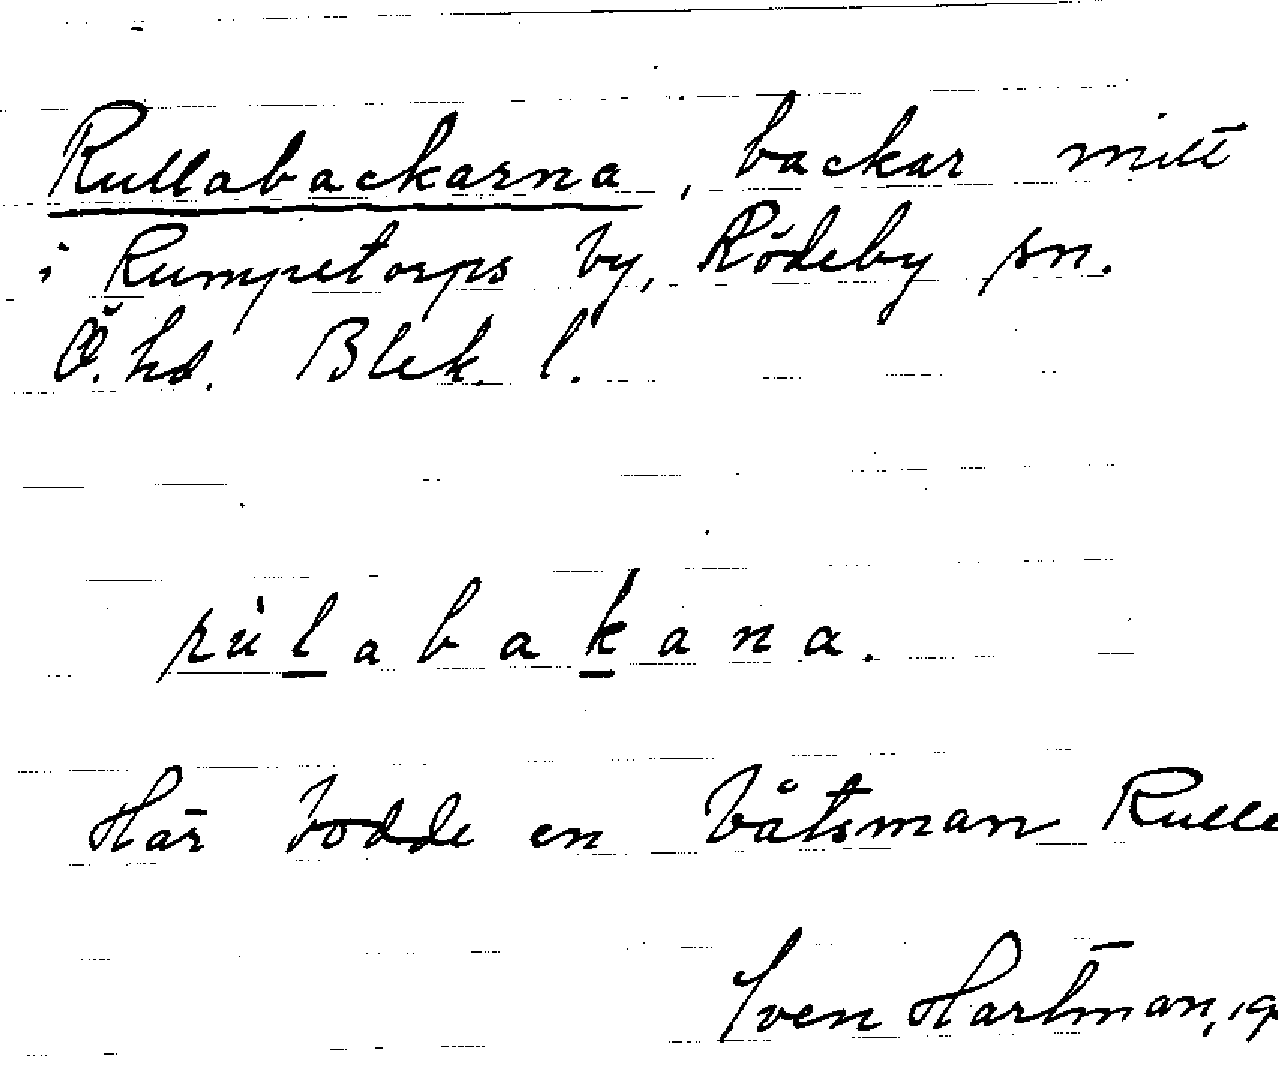 Rullabackarna, backar mitt
i Rumpetorps by, Rödeby sn.
Ö. hd. Blek. l.
rùlabakana.
Här bodde en båtsman Rulle
Sven Hartman, 19